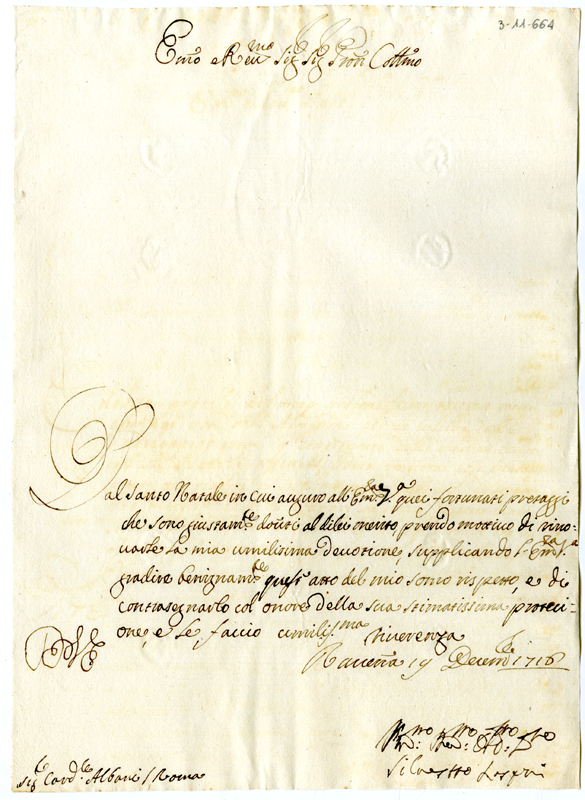 3-11-664
Emo e Rmo Sig Sig Pron Collmo
Dal Santo Natale in cui auguro all' Emza Va quei fortunati presaggi
che sono giustamte dovuti al di lei merito, prendo mottivo di rino-
varle la mia umilisima devotione, supplicando l'Emza Va
gradire benignamte quest' atto del mio somo rispetto, e di
contrasegnarlo col onore della sua stimatissima proteci-
one, e le faccio umilisma riverenza
Ravenna 19 Decembre 1716
Silvestro
Sigr Cardle Albani / Roma